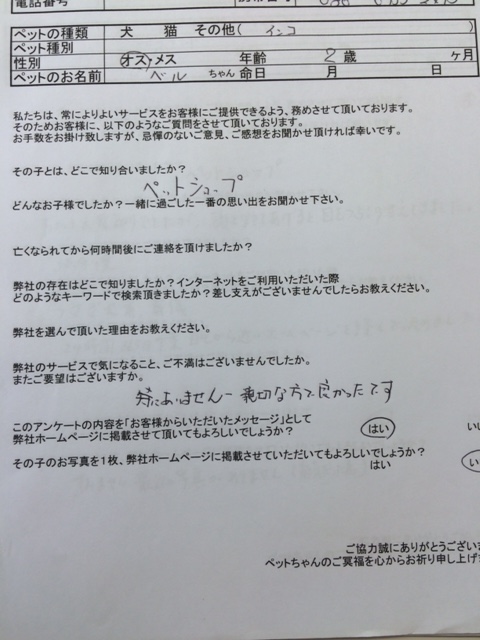 電話番号
ペットの種類 犬 猫 その他( インコ
ペット種別
性別 オス・メス 年齢 2 歳 ヶ月
ペットのお名前 ベル ちゃん 命日 月 日
私たちは、常によりよいサービスをお客様にご提供できるよう、務めさせて頂いております。
そのためお客様に、以下のようなご質問をさせて頂いております。
お手数をお掛け致しますが、忌憚のないご意見、ご感想をお聞かせ頂ければ幸いです。
その子とは、どこで知り合いましたか？
ペットショップ
どんなお子様でしたか？一緒に過ごした一番の思い出をお聞かせ下さい。
亡くなられてから何時間後にご連絡を頂けましたか？
弊社の存在はどこで知りましたか？インターネットをご利用いただいた際
どのようなキーワードで検索頂きましたか？差し支えがございませんでしたらお教えください。
弊社を選んで頂いた理由をお教えください。
弊社のサービスで気になること、ご不満はございませんでしたか。
またご要望はございますか。
特にありません 親切な方で良かったです
このアンケートの内容を「お客様からいただいたメッセージ」として
弊社ホームページに掲載させて頂いてもよろしいでしょうか？ はい い
その子のお写真を1枚、弊社ホームページに掲載させていただいてもよろしいでしょうか？
はい い
ご協力誠にありがとうござい
ペットちゃんのご冥福を心からお祈り申し上げ